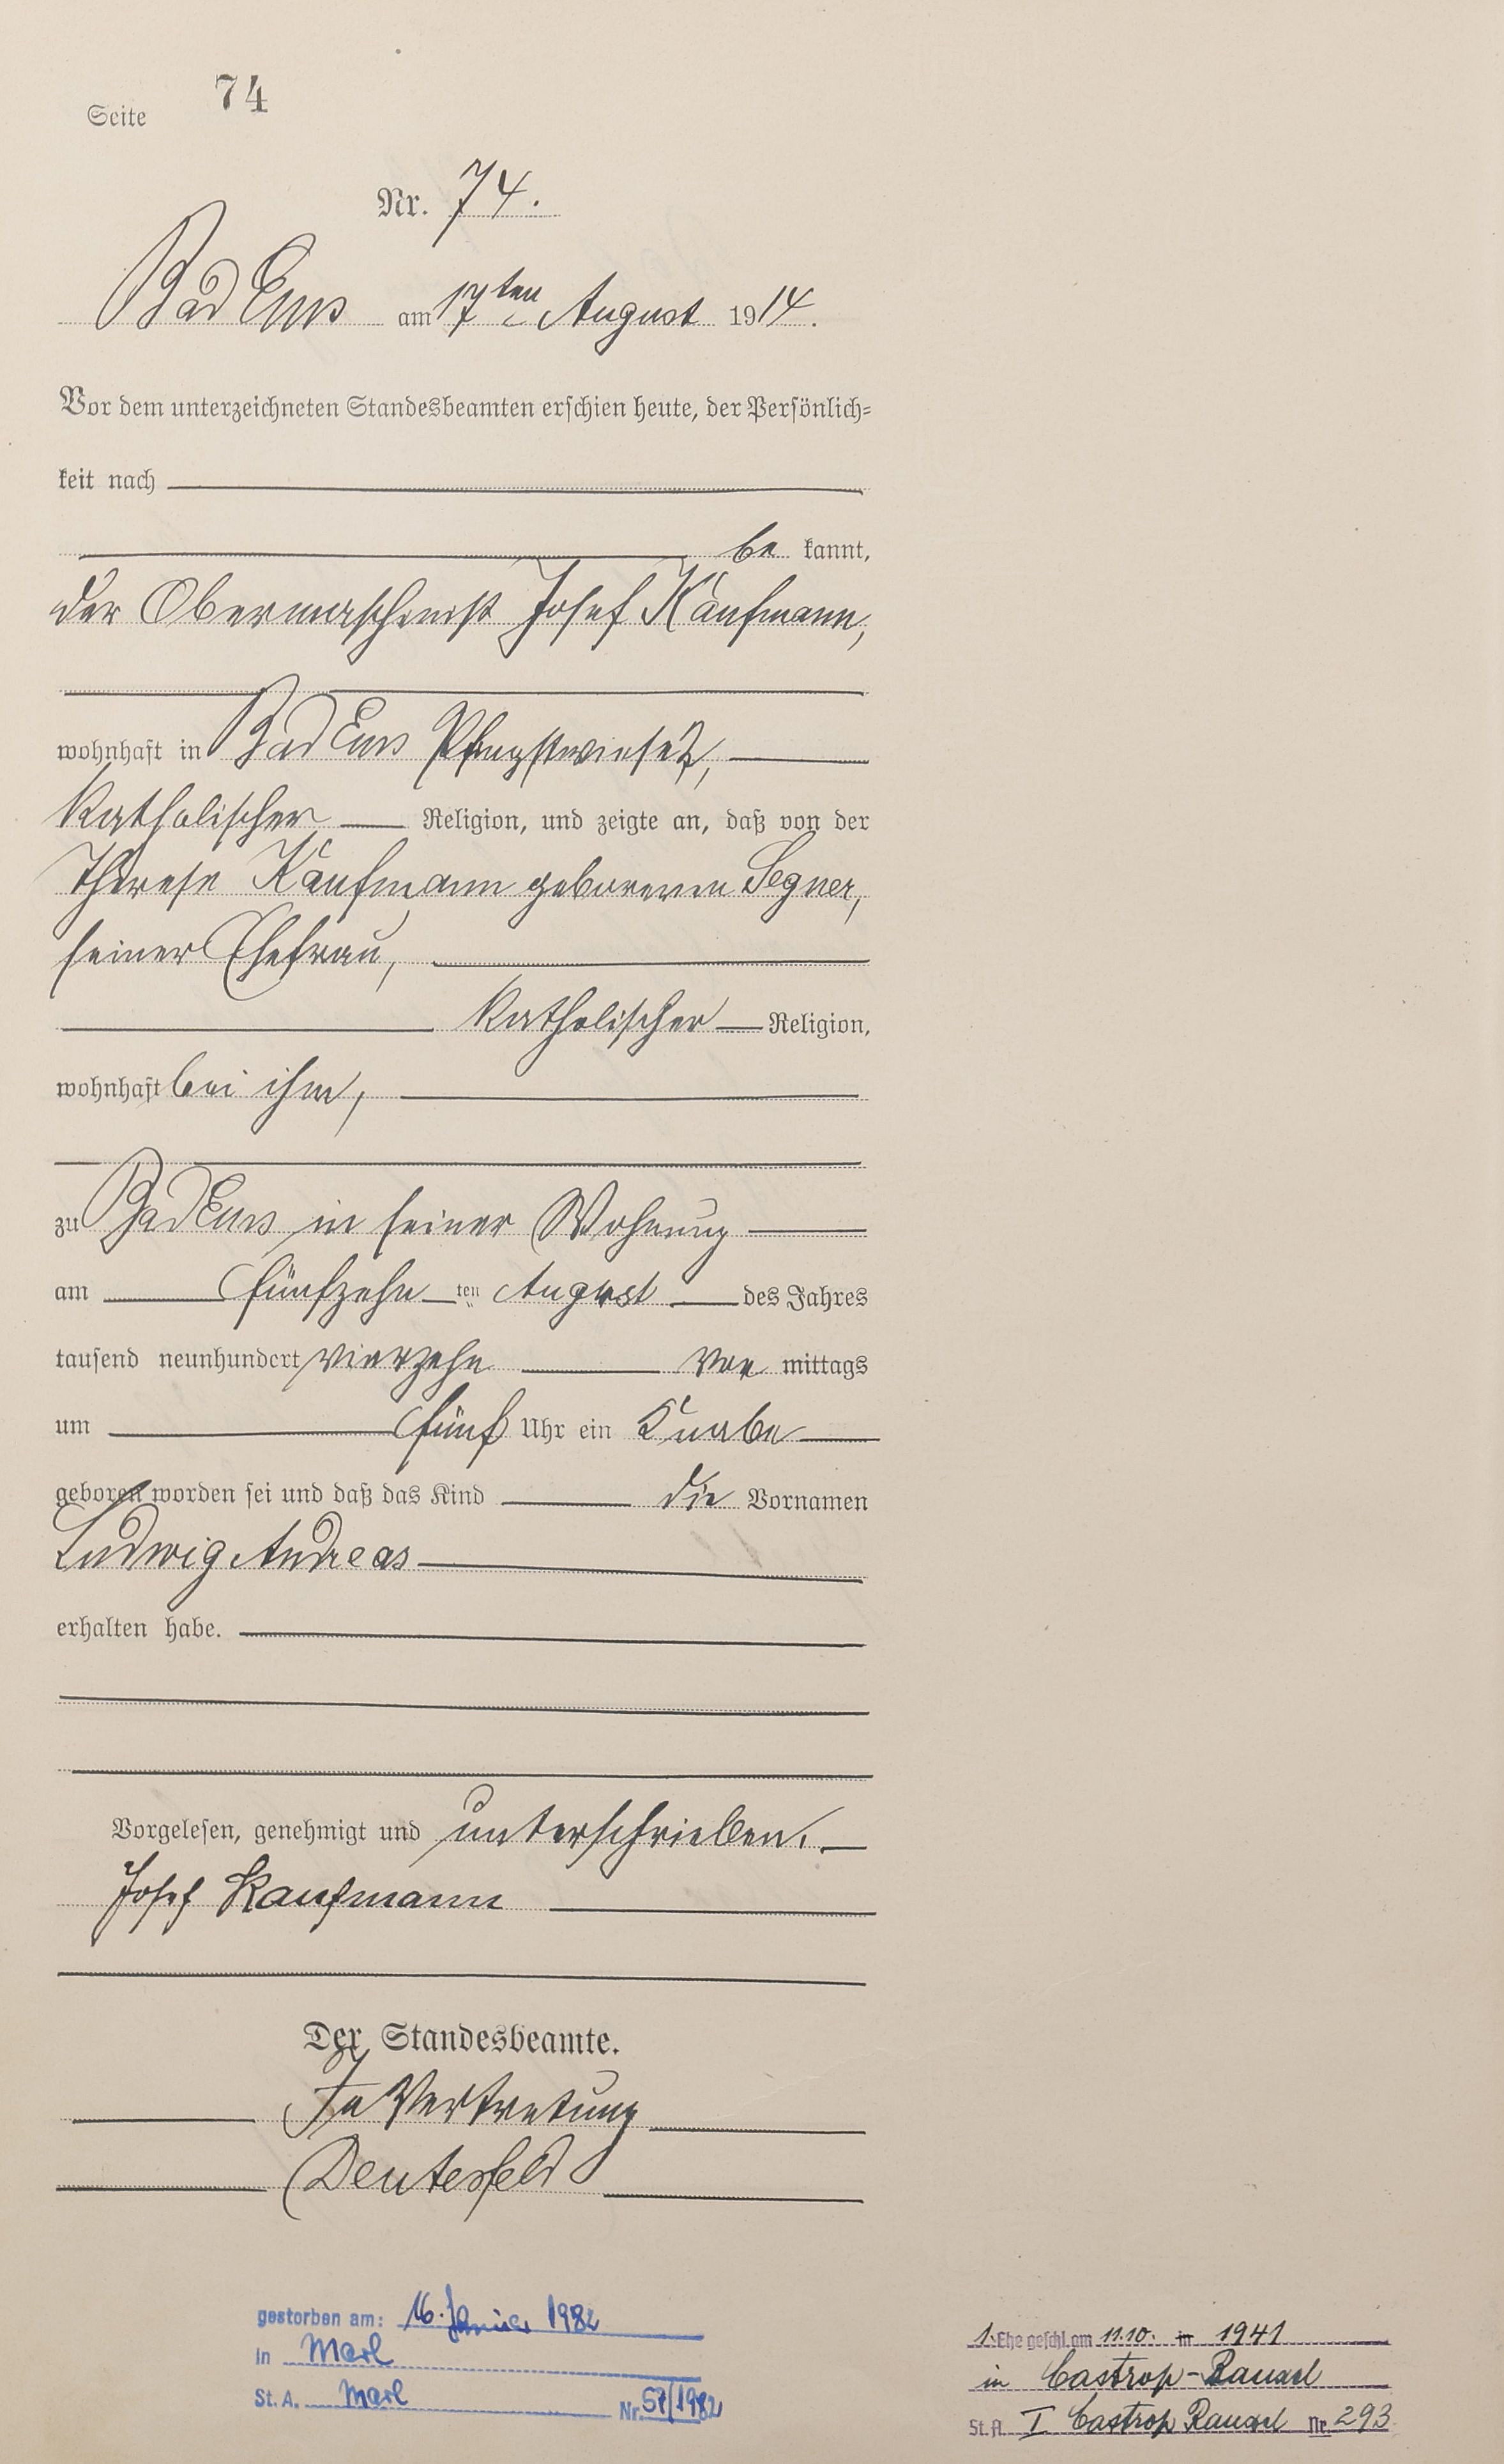 Seite 74
Nr. 74.
Bad Ems am 17ten August 1914.
Vor dem unterzeichneten Standesbeamten erschien heute, der Persönlich-
keit nach
be kannt,
der Obermaschinist Josef Kaufmann,
wohnhaft in Bad Ems Pfingstwiese 2,
katholischer Religion, und zeigte an, daß von der
Therese Kaufmann geborenen Segner,
seiner Ehefrau,
katholischer Religion,
wohnhaft bei ihm,
zu Bad Ems in seiner Wohnung
am fünfzehn ten August des Jahres
tausend neunhundert vierzehn vor mittags
um fünf Uhr ein Knabe
geboren worden sei und daß das Kind die Vornamen
Ludwig Andreas
erhalten habe.
Vorgelesen, genehmigt und unterschrieben.
Josef Kaufmann
Der Standesbeamte.
In Vertretung
Deutesfeld
gestorben am: 16. Januar 1982
in Marl
St. A. Marl Nr. 57/1982
1. Ehe geschl. am 11.10. 1941
in Castrop-Rauxel
St. A. I Castrop Rauxel Nr. 293